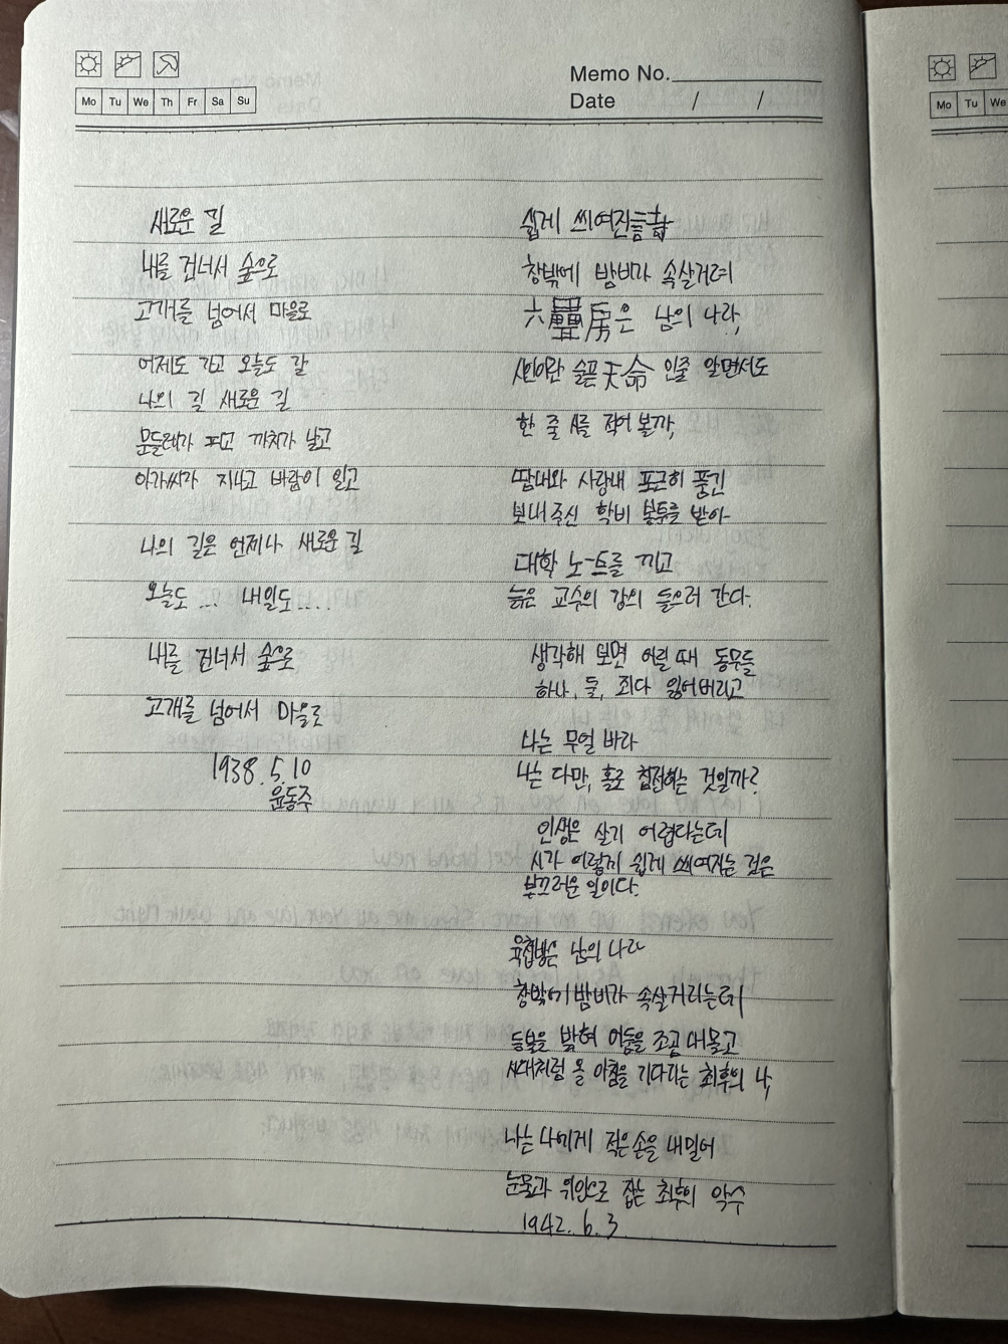 Memo No.
Date / /
Mo Tu We Th Fr Sa Su
새로운 길
내를 건너서 숲으로
고개를 넘어서 마을로
어제도 가고 오늘도 갈
나의 길 새로운 길
문들레가 피고 까치가 날고
아가씨가 지나고 바람이 일고
나의 길은 언제나 새로운 길
오늘도 ... 내일도....
내를 건너서 숲으로
고개를 넘어서 마을로
1938. 5. 10
윤동주
쉽게 씌여진
창밖에 밤비가 속살거려
六疊房은 남의 나라,
시인이란 슬픈 天命 인줄 알면서도
한 줄 시를 적어 볼까,
땀내와 사랑내 포근히 품긴
보내주신 학비 봉투를 받아
대학 노-트를 끼고
늙은 교수의 강의 들으러 간다.
생각해 보면 어릴 때 동무들
하나, 둘, 죄다 잃어버리고
나는 무얼 바라
나는 다만, 홀로 침전하는 것일까?
인생은 살기 어렵다는데
시가 이렇게 쉽게 씌여지는 것은
부끄러운 일이다.
육첩방은 남의 나라
창밖에 밤비가 속살거리는데
등불을 밝혀 어둠을 조곰 내몰고
시대처럼 올 아침을 기다리는 최후의 나,
나는 나에게 적은 손을 내밀어
눈물과 위안으로 잡는 최후의 악수
1942. 6. 3
Mo Tu We